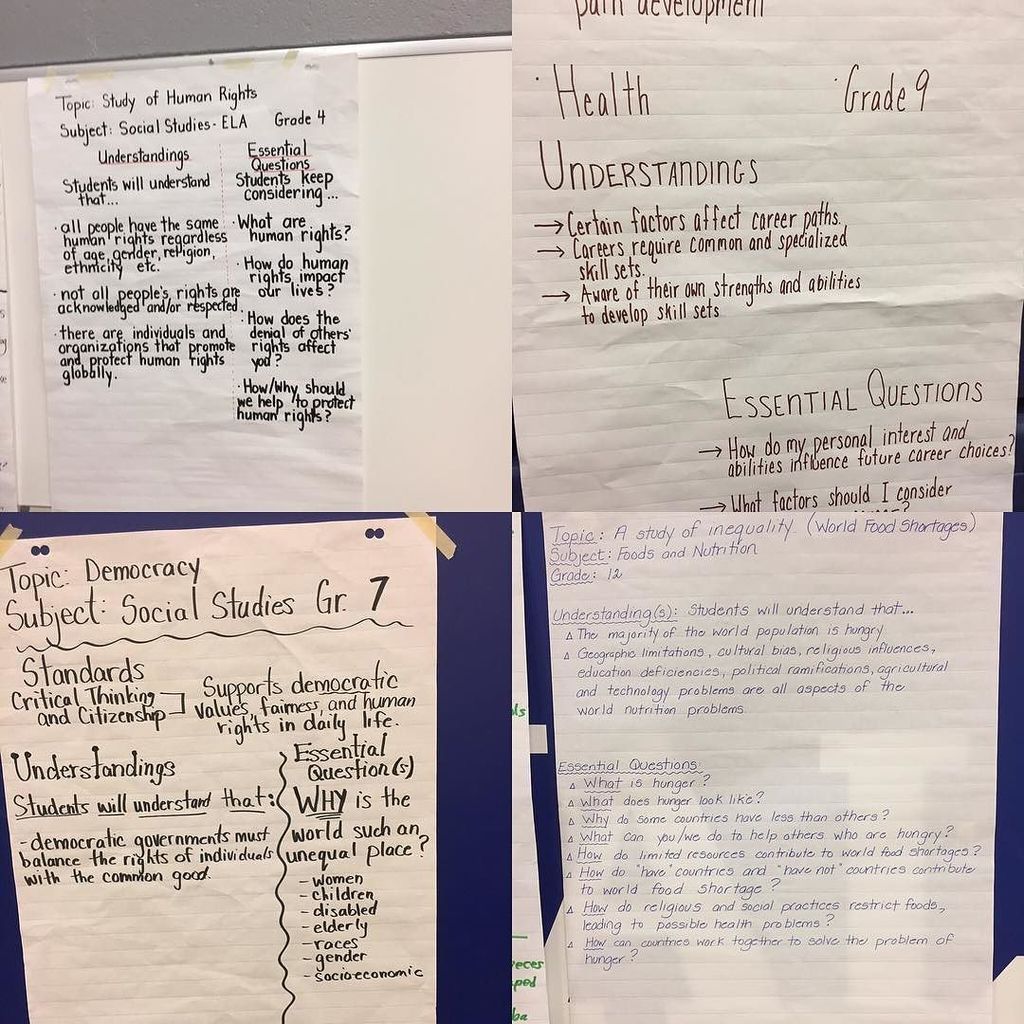 Topic: Study of Human Rights
Subject: Social Studies- ELA Grade 4
Understandings
Students will understand
that...
· all people have the same
human rights regardless
of age, gender, religion,
ethnicity etc.
· not all people's rights are
acknowledged and/or respected.
· there are individuals and
organizations that promote
and protect human rights
globally.
Essential
Questions
Students keep
considering...
· What are
human rights?
· How do human
rights impact
our lives?
· How does the
denial of others'
rights affect
you?
· How/Why should
we help to protect
human rights?
path development
· Health · Grade 9
UNDERSTANDINGS
→ Certain factors affect career paths.
→ Careers require common and specialized
skill sets.
→ Aware of their own strengths and abilities
to develop skill sets
ESSENTIAL QUESTIONS
→ How do my personal interest and
abilities influence future career choices?
→ What factors should I consider
Topic: Democracy
Subject: Social Studies Gr. 7
Standards
Critical Thinking
and Citizenship
Supports democratic
values, fairness, and human
rights in daily life.
Understandings
Students will understand that:
- democratic governments must
balance the rights of individuals
with the common good.
Essential
Question(s)
WHY is the
world such an
unequal place?
- women
- children
- disabled
- elderly
- races
- gender
- socio-economic
Topic: A study of inequality (World Food Shortages)
Subject: Foods and Nutrition
Grade: 12
Understanding(s): Students will understand that...
△ The majority of the world population is hungry
△ Geographic limitations, cultural bias, religious influences,
education deficiencies, political ramifications, agricultural
and technology problems are all aspects of the
world nutrition problems.
Essential Questions:
△ What is hunger?
△ What does hunger look like?
△ Why do some countries have less than others?
△ What can you/we do to help others who are hungry?
△ How do limited resources contribute to world food shortages?
△ How do "have" countries and "have not" countries contribute
to world food shortage?
△ How do religious and social practices restrict foods,
leading to possible health problems?
△ How can countries work together to solve the problem of
hunger?